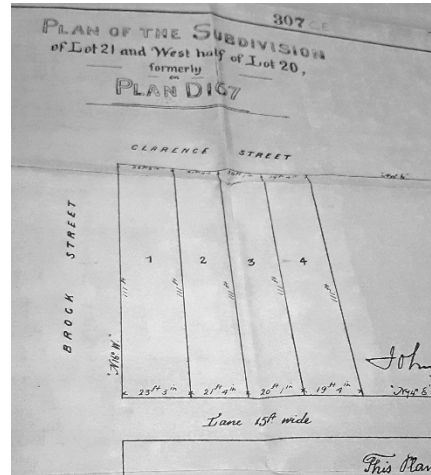 307 CE
PLAN OF THE SUBDIVISION
of Lot 21 and West half of Lot 20,
formerly
on
PLAN D167
CLARENCE STREET
BROCK STREET
1 2 3 4
111 ft 111 ft 111 ft 111 ft
23 ft 3 in 21 ft 4 in 20 ft 1 in 19 ft 4 in
Lane 15 ft wide
John
This Plan